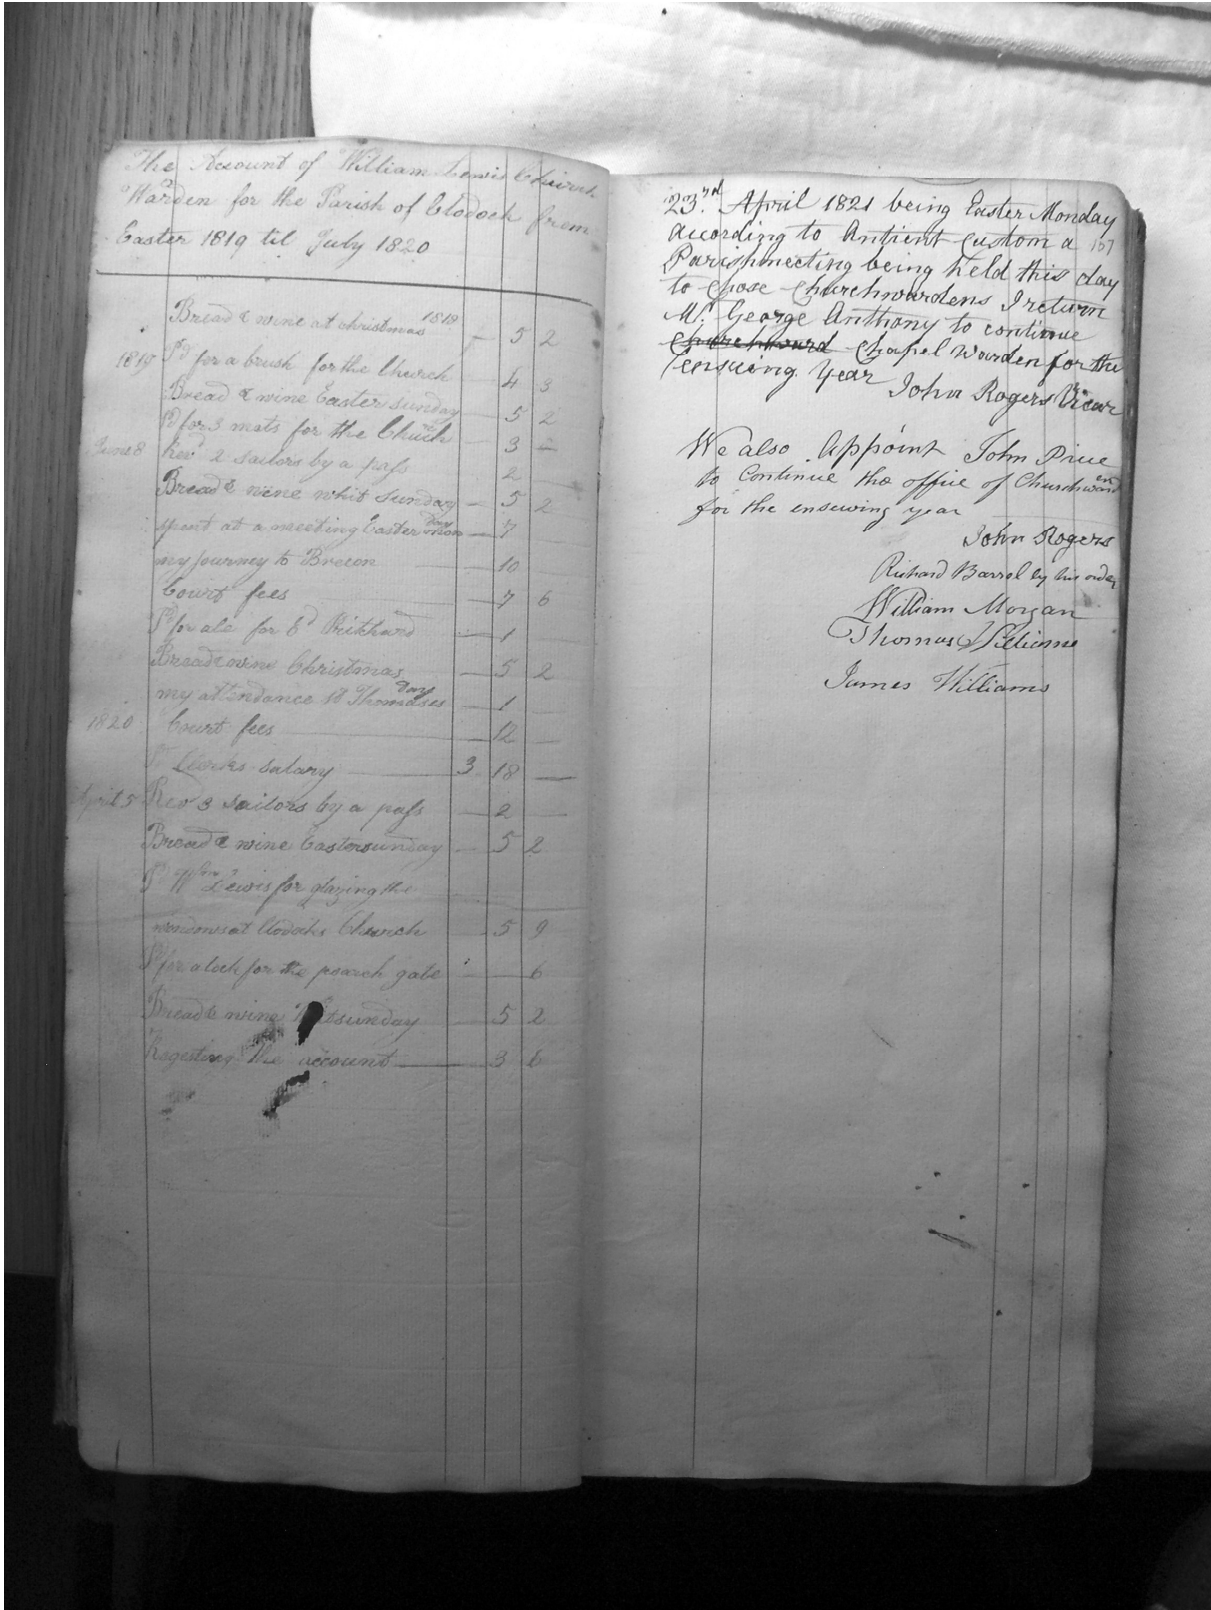 The Account of William Lewis Church
Warden for the Parish of Clodock from
Easter 1819 til July 1820
Bread & wine at christmas 1818 - 5 2
1819 Pd for a brush for the Church - 4 3
Bread & wine Easter sunday - 5 2
Pd for 3 mats for the Church - 3 -
June 8 Revd 2 sailors by a pass 2
Bread & wine whit sunday - 5 2
spent at a meeting Easter mon day - 7
my Journey to Brecon - 10
Court fees - 7 6
Pd for ale for Ed Pritchard - 1
Bread & wine Christmas - 5 2
my attendance St Thomases day - 1
1820 Court fees - 12 -
Pd Clerks salary 3 18 -
April 5 Revd 3 sailors by a pass - 2 -
Bread & wine Easter sunday - 5 2
Pd Wm Lewis for glazing the
windows at Clodocks Church - 5 9
Pd for a lock for the poarch gate - - 6
Bread & wine sunday - 5 2
Regesting the account - 3 6
23rd April 1821 being Easter Monday
According to Antient Custom a 167
Parishmeeting being held this day
to Chose Churchwardens I return
Mr George Anthony to continue
Churchward Chapel Warden for the
ensueing Year John Rogers Vicar
We also Appoint John Price
to Continue the office of Churchwarden
for the ensewing year
John Rogers
Richard Barrol by his order
William Morgan
Thomas Williams
James Williams